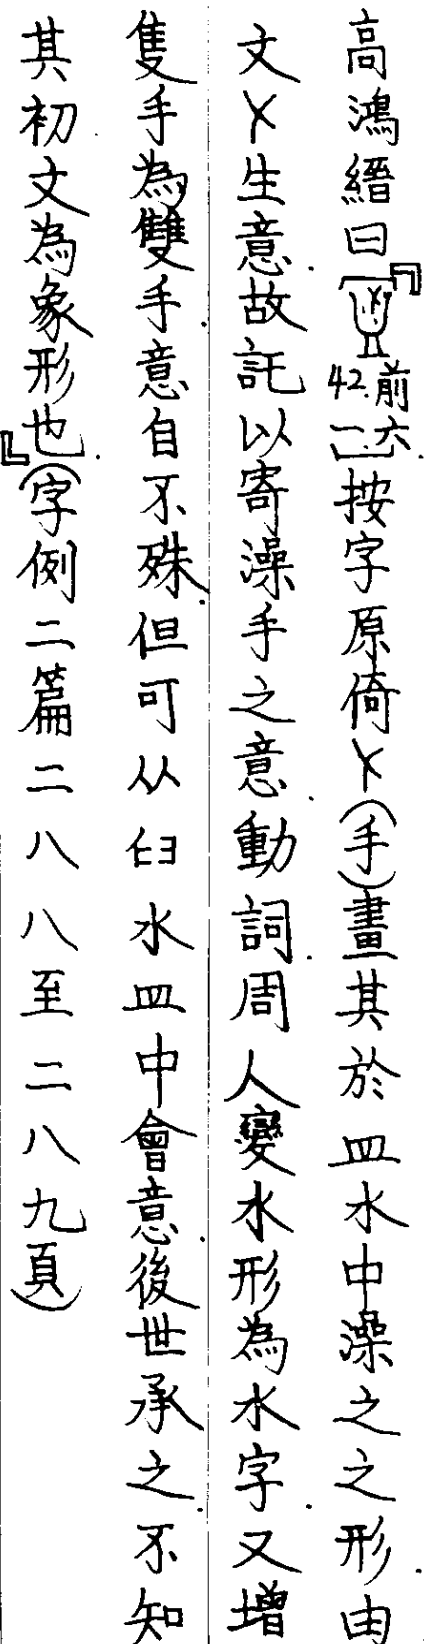 高鴻縉曰『(前六.42.一)按字原倚(手)畫其於皿水中澡之之形.由
文生意.故託以寄澡手之意.動詞.周人變水形為水字.又增
隻手為雙手.意自不殊.但可从臼水皿中會意.後世承之.不知
其初文為象形也.』(字例二篇二八八至二八九頁)